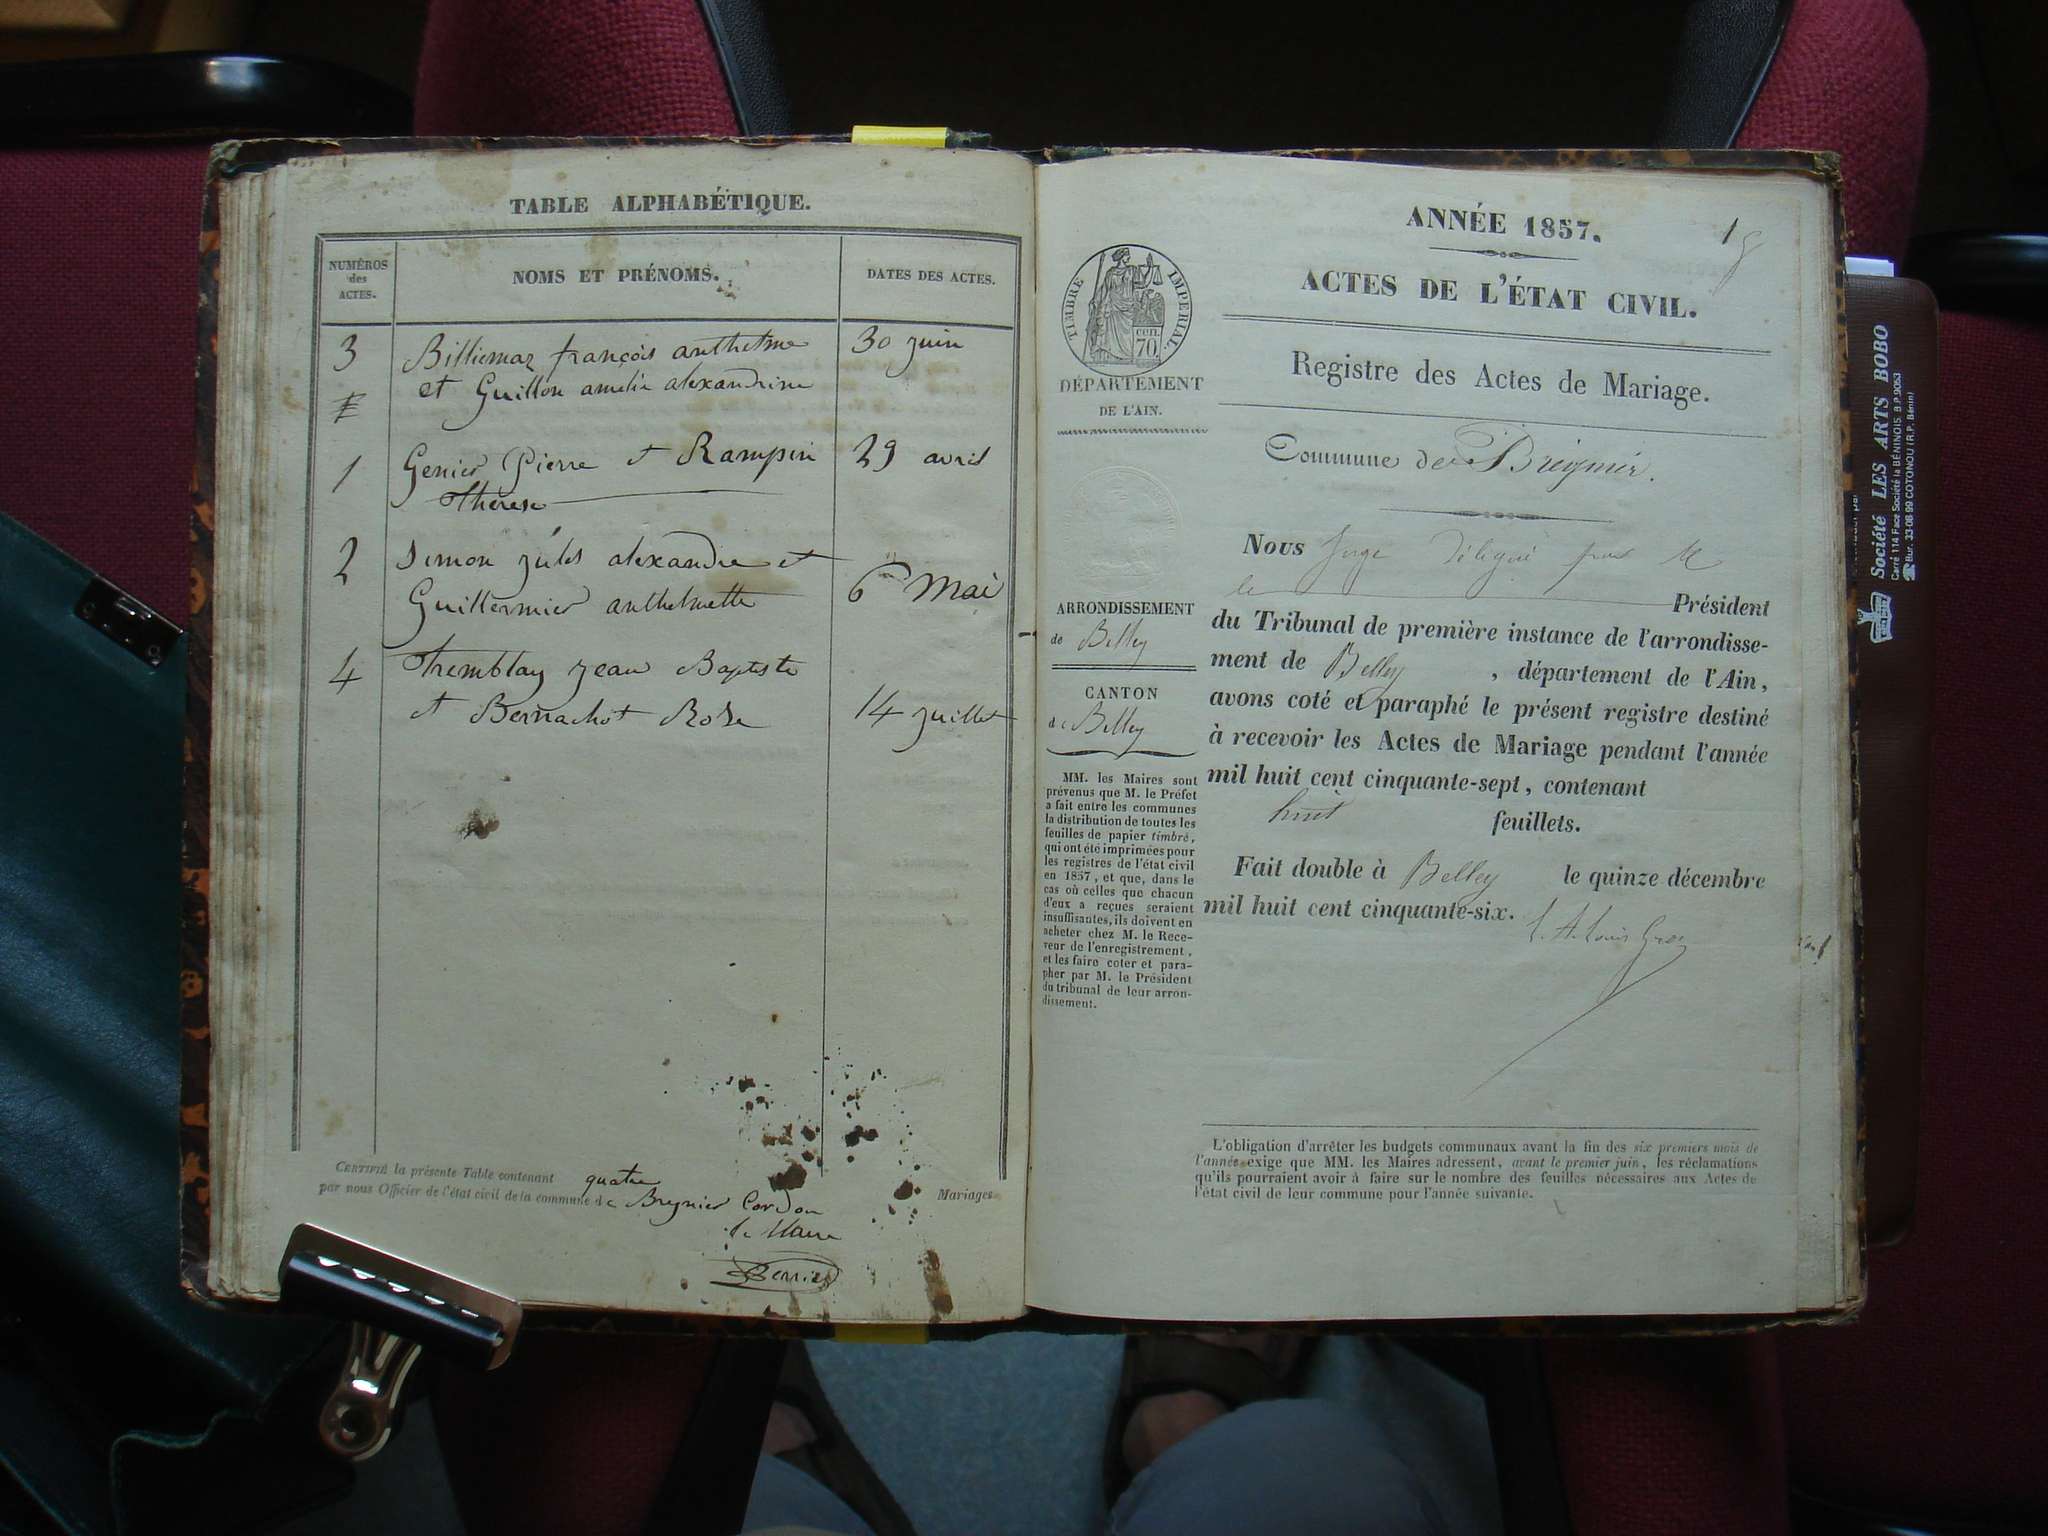 TABLE ALPHABÉTIQUE.
NUMÉROS
des
ACTES.
NOMS ET PRÉNOMS.
DATES DES ACTES.
3 Billiemaz françois anthelme 30 juin
et Guillon amélie alexandrine
1 Genier Pierre et Rampin 29 avril
Therese
2 Simon jules alexandre et
Guillermier anthelmette 6 Mai
4 Tremblay jean Baptiste
et Bernachot Rose 14 juillet
CERTIFIÉ la présente Table contenant quatre Mariages
par nous Officier de l'état civil de la commune de Bregnier Cordon
le Maire
ANNÉE 1857.
1
ACTES DE L'ÉTAT CIVIL.
TIMBRE IMPERIAL
cen.
70.
DÉPARTEMENT
DE L'AIN.
Registre des Actes de Mariage.
Commune de Breignier.
ARRONDISSEMENT
de Belley
CANTON
de Belley
MM. les Maires sont
prévenus que M. le Préfet
a fait entre les communes
la distribution de toutes les
feuilles de papier timbré,
qui ont été imprimées pour
les registres de l'état civil
en 1857, et que, dans le
cas où celles que chacun
d'eux a reçues seraient
insuffisantes, ils doivent en
acheter chez M. le Rece-
veur de l'enregistrement,
et les faire coter et para-
pher par M. le Président
du tribunal de leur arron-
dissement.
Nous Juge délégué par M
le Président
du Tribunal de première instance de l'arrondisse-
ment de Belley, département de l'Ain,
avons coté et paraphé le présent registre destiné
à recevoir les Actes de Mariage pendant l'année
mil huit cent cinquante-sept, contenant
huit feuillets.
Fait double à Belley le quinze décembre
mil huit cent cinquante-six.
L'obligation d'arrêter les budgets communaux avant la fin des six premiers mois de
l'année exige que MM. les Maires adressent, avant le premier juin, les réclamations
qu'ils pourraient avoir à faire sur le nombre des feuilles nécessaires aux Actes de
l'état civil de leur commune pour l'année suivante.
Société LES ARTS BOBO
Carré 114 Face Société la BÉNINOIS. B.P. 9053
Bur. 33-06-99 COTONOU (R.P. Bénin)